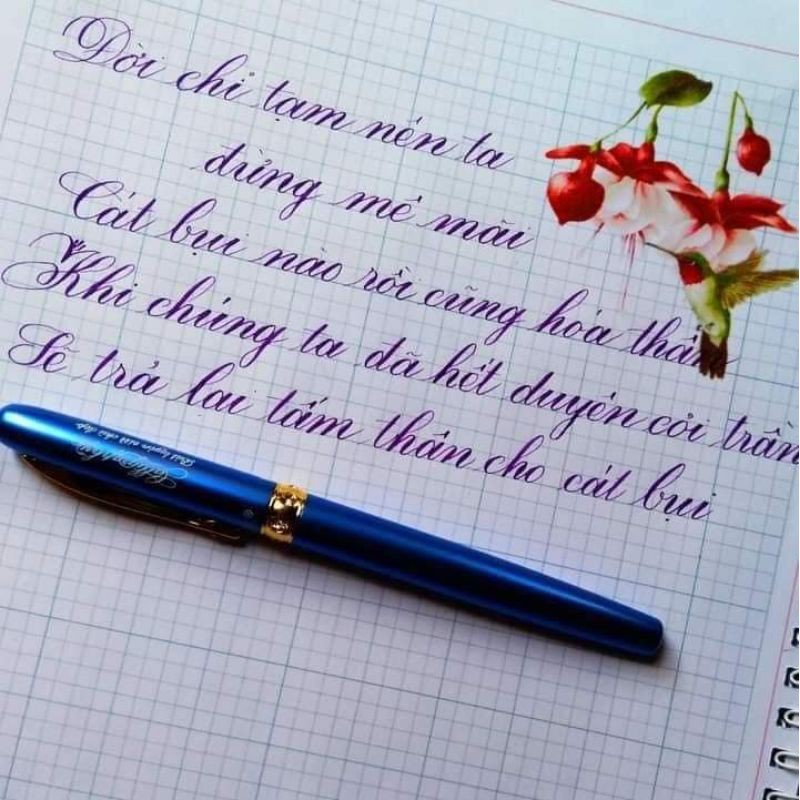 Đời chỉ tạm nên ta
đừng mê mãi
Cát bụi nào rồi cũng hóa thân
Khi chúng ta đã hết duyên cõi trần
Sẽ trả lại tấm thân cho cát bụi